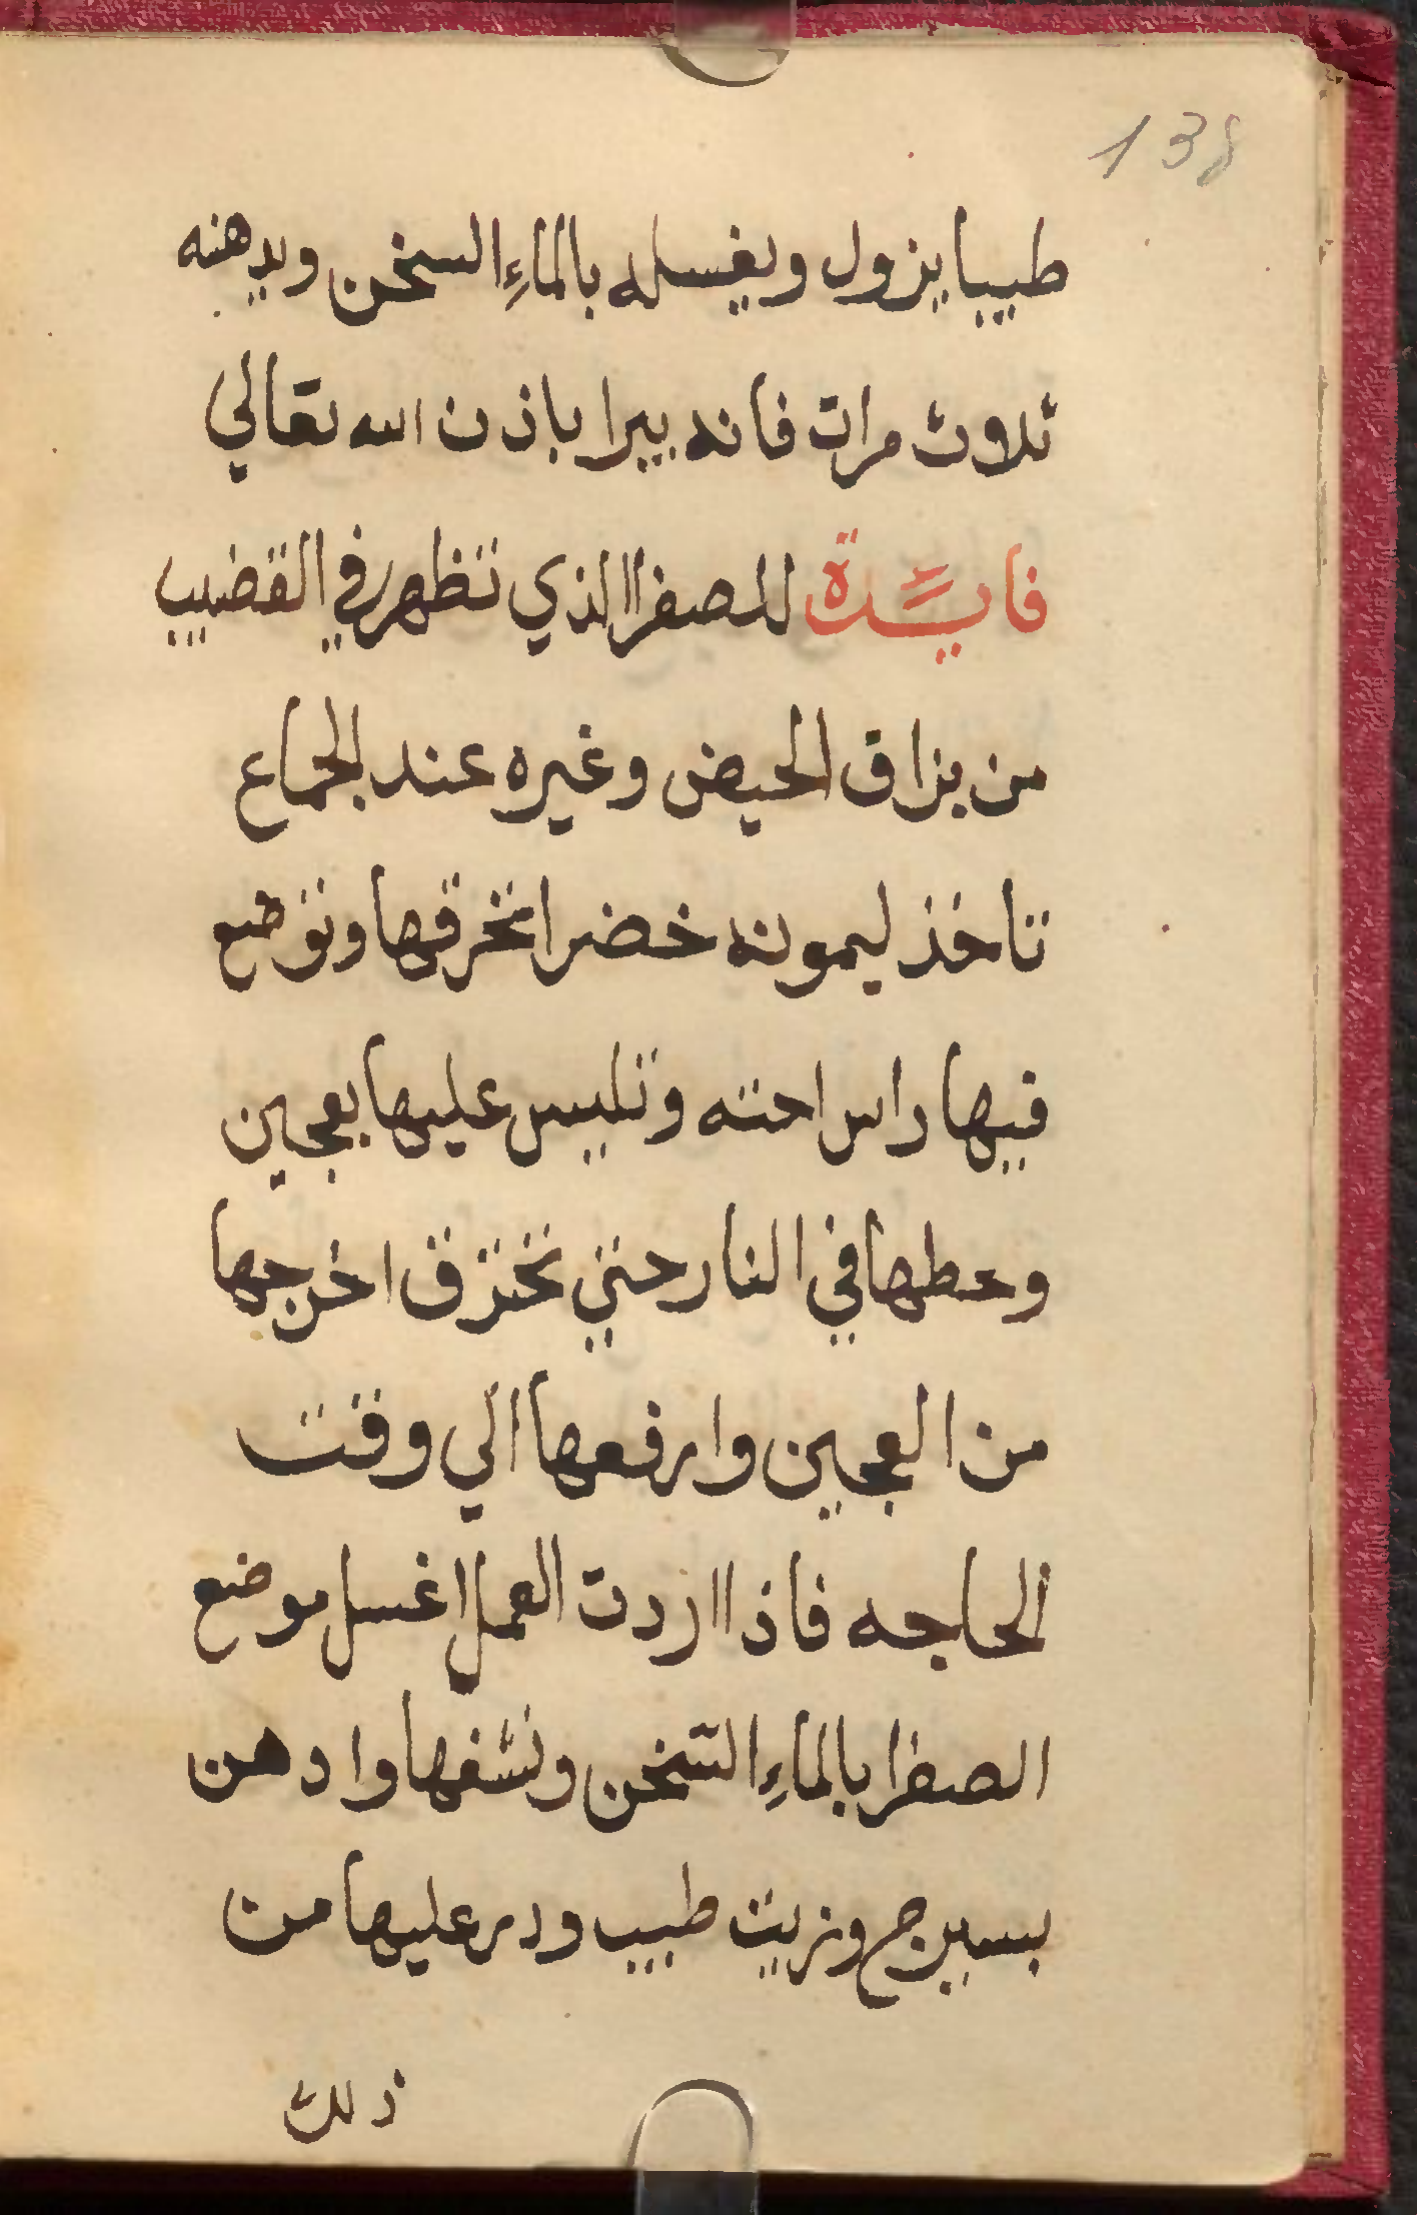 138
طيبا يزول ويغسله بالماءِ السخن ويدهنه
ثلاوث مرات فانه يبرا باذن الله تعالي
فايدة للصفرا الذي تظهر في القضيب
من بزاق الحيض وغيره عند الجماع
تاخذ ليمونه خضرا تخرقها وتوضع
فيها راس احته وتلبس عليها بعجين
وحطها في النار حتي تحترق اخرجها
من العجين وارفعها الي وقت
الحاجه فاذا اردت العمل اغسل موضع
الصفرا بالماءِ السخن ونشفها وادهن
بسيرج وزيت طيب ودر عليها من
ذلك